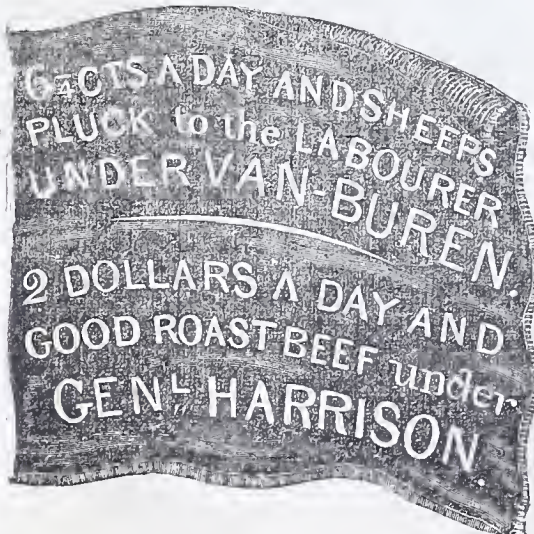 6¼ CTS A DAY AND SHEEPS
PLUCK to the LABOURER
UNDER VAN-BUREN.
2 DOLLARS A DAY AND
GOOD ROAST BEEF under
GENL HARRISON.